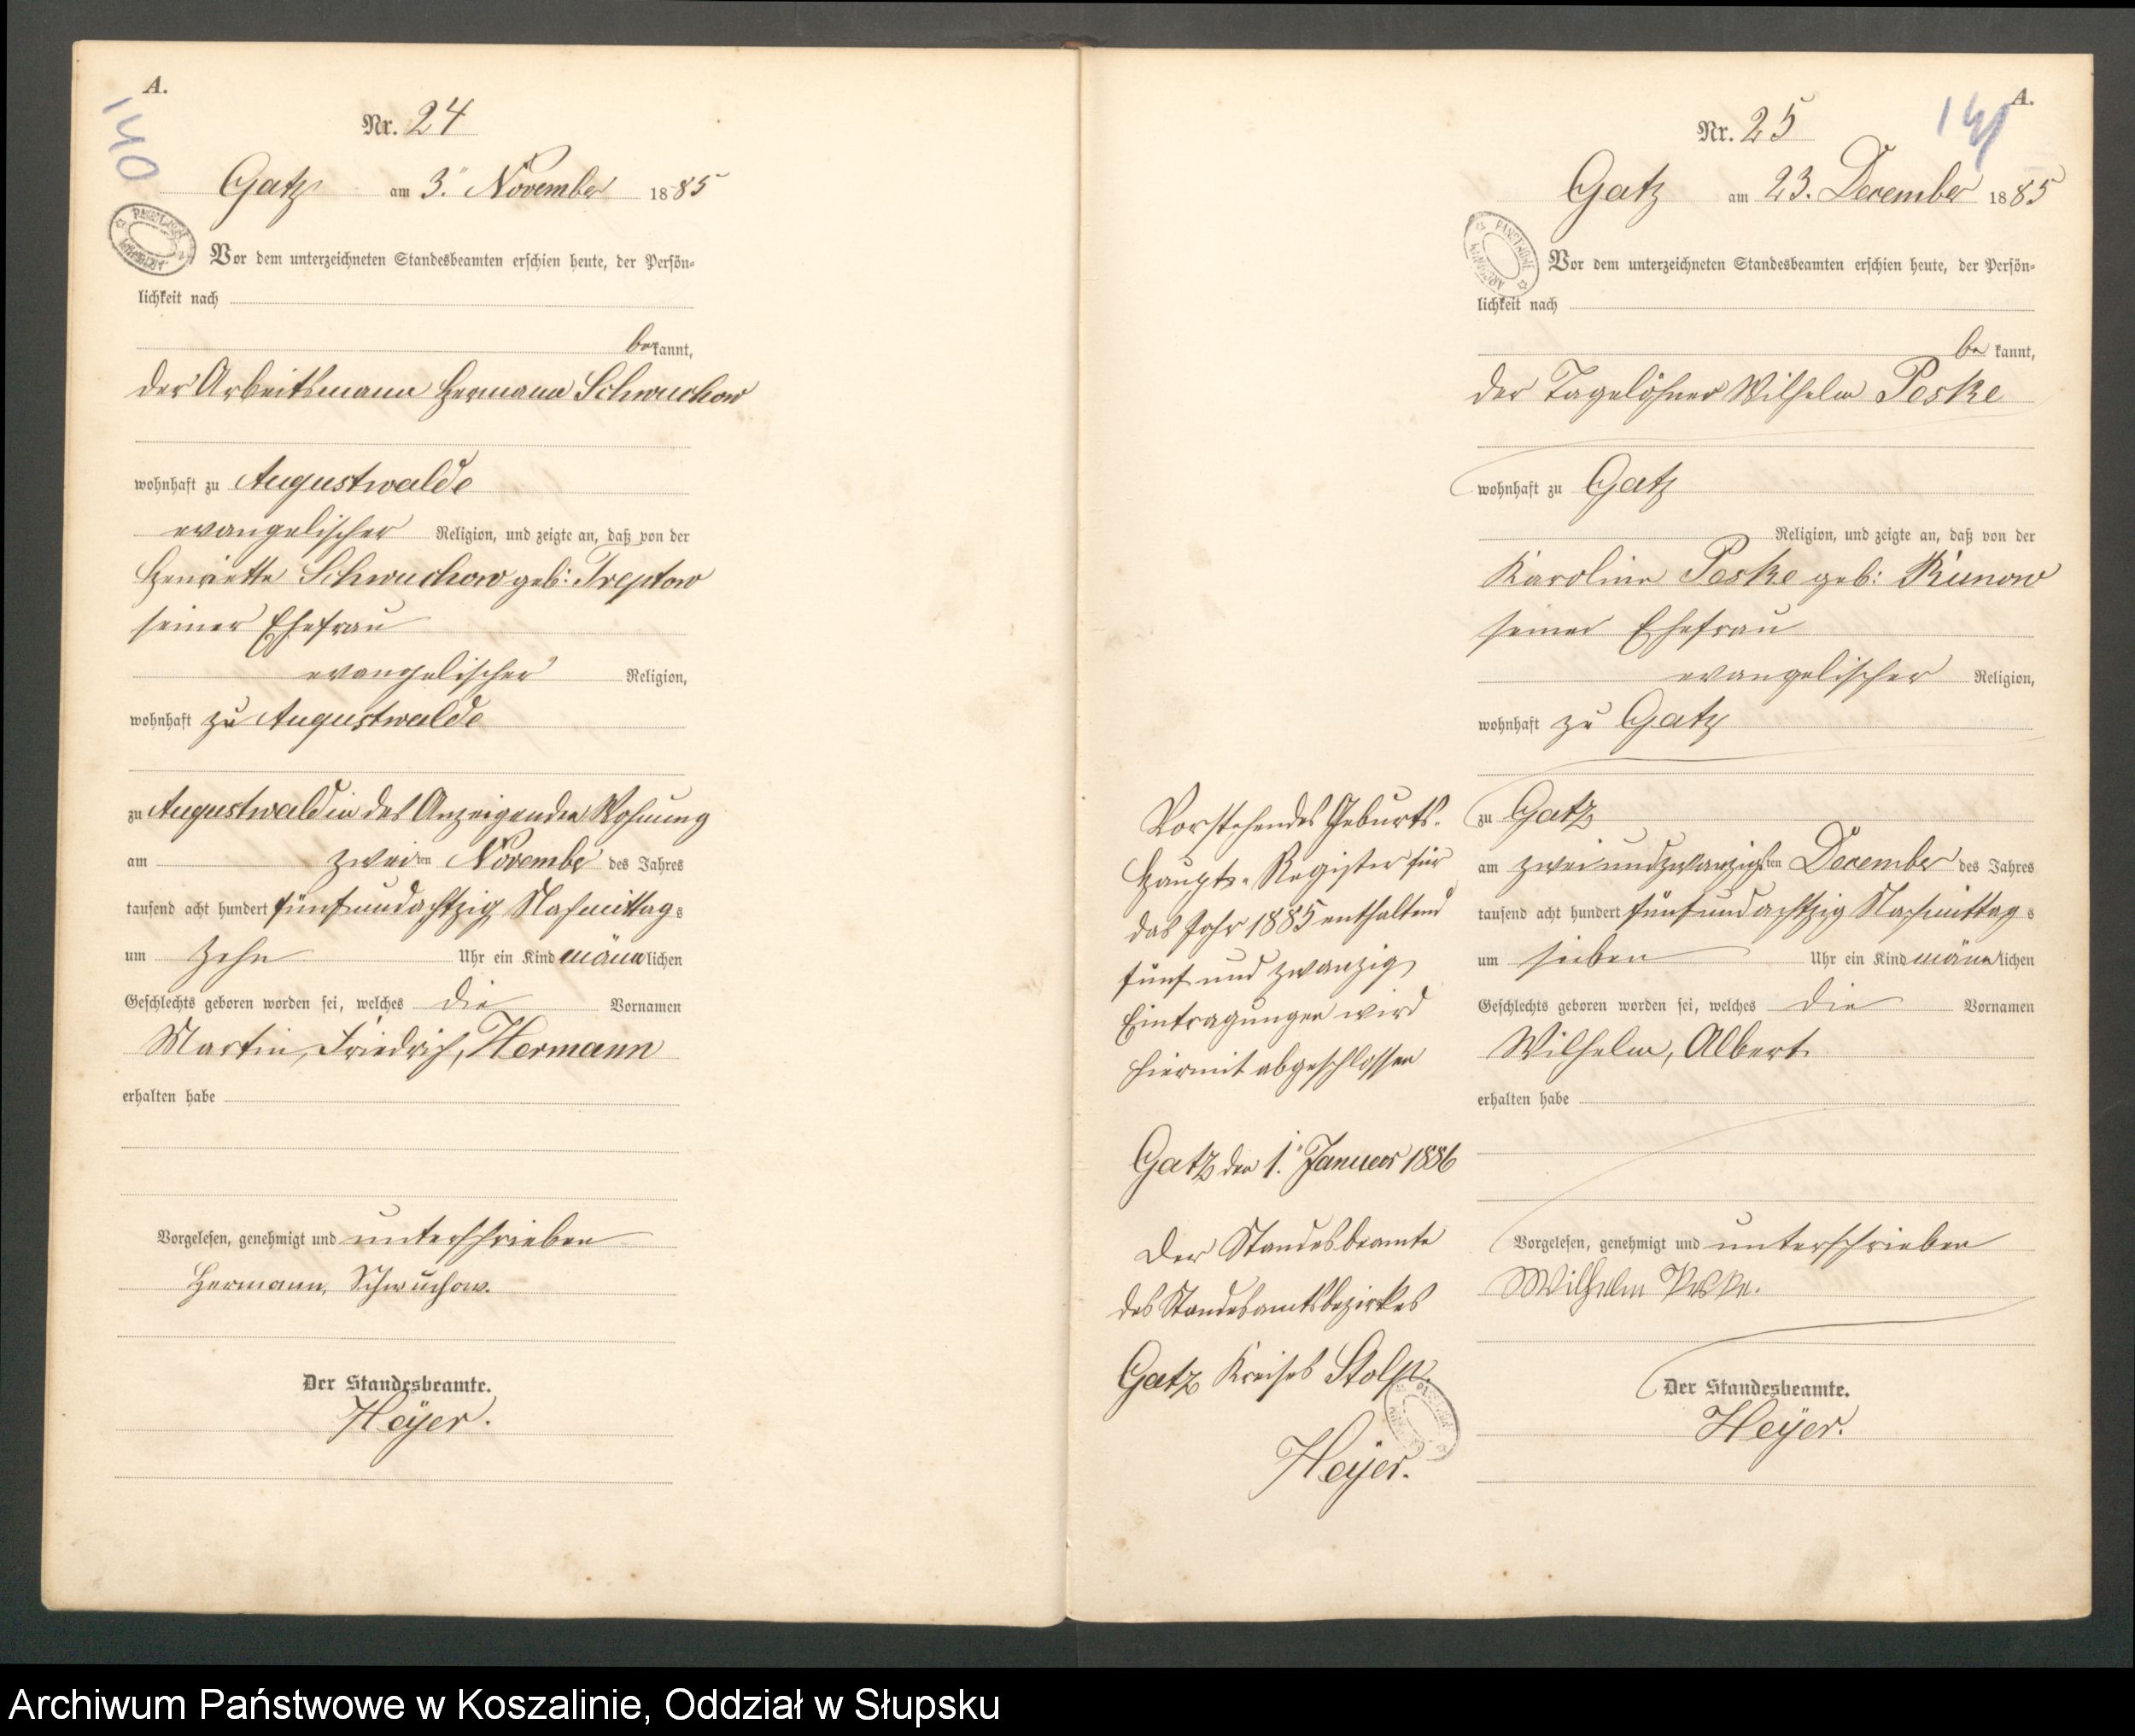 A.
140
Nr. 24
Gatz am 3. November 1885
Vor dem unterzeichneten Standesbeamten erschien heute, der Persön-
lichkeit nach
bekannt,
der Arbeitsmann Hermann Schwuchow
wohnhaft zu Augustwalde
evangelischer Religion, und zeigte an, daß von der
Henriette Schwuchow geb: Treptow
seiner Ehefrau
evangelischer Religion,
wohnhaft zu Augustwalde
zu Augustwald in des Anzeigenden Wohnung
am zweiten November des Jahres
tausend acht hundert fünfundachtzig Nachmittags
um zehn Uhr ein Kind männlichen
Geschlechts geboren worden sei, welches die Vornamen
Martin, Friedrich, Hermann
erhalten habe
Vorgelesen, genehmigt und unterschrieben
Hermann Schwuchow.
Der Standesbeamte.
Heÿer.
A.
Nr. 25
Gatz am 23. December 1885
Vor dem unterzeichneten Standesbeamten erschien heute, der Persön-
lichkeit nach
bekannt,
der Tagelöhner Wilhelm Peske
wohnhaft zu Gatz
Religion, und zeigte an, daß von der
Karoline Peske geb: Kunow
seiner Ehefrau
evangelischer Religion,
wohnhaft zu Gatz
zu Gatz
am zweiundzwanzigsten December des Jahres
tausend acht hundert fünfundachtzig Nachmittags
um sieben Uhr ein Kind männlichen
Geschlechts geboren worden sei, welches die Vornamen
Wilhelm, Albert
erhalten habe
Vorgelesen, genehmigt und unterschrieben
Wilhelm Peske.
Der Standesbeamte.
Heÿer.
Vorstehendes Geburts-
Haupt-Register für
das Jahr 1885 enthaltend
fünf und zwanzig
Eintragungen wird
hiermit abgeschlossen
Gatz den 1. Januar 1886
Der Standesbeamte
des Standesamtsbezirkes
Gatz Kreises Stolp.
Heÿer.
Archiwum Państwowe w Koszalinie, Oddział w Słupsku